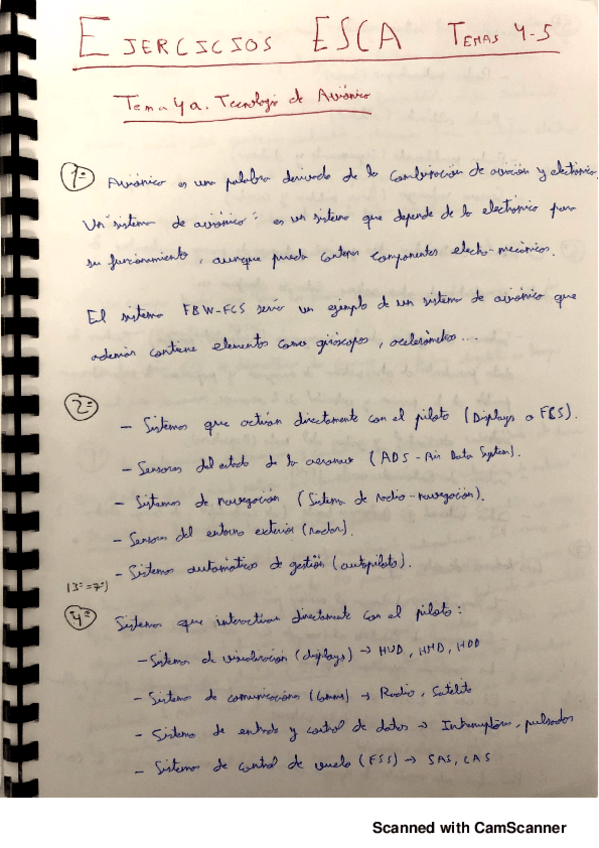 EJERCICIOS ESCA TEMAS 4-5
Tema 4a. Tecnología de Aviónica
1º Aviónica es una palabra derivada de la combinación de aviación y electrónica.
Un "sistema de aviónica" es un sistema que depende de la electrónica para
su funcionamiento, aunque pueda contener componentes electro-mecánicos.
El sistema FBW-FCS sería un ejemplo de un sistema de aviónica que
además contiene elementos como giróscopos, acelerómetros ....
2º
- Sistemas que actúan directamente con el piloto (Displays o FCS).
- Sensores del estado de la aeronave (ADS - Air Data System).
- Sistemas de navegación (Sistema de radio-navegación).
- Sensores del entorno exterior (radar).
- Sistemas automáticos de gestión (autopiloto).
(3º=7º)
4º Sistemas que interactúan directamente con el piloto:
- Sistemas de visualización (displays) → HUD, HMD, HDD
- Sistema de comunicaciones (Comms) → Radio, Satélite
- Sistema de entrada y control de datos → Interruptores, pulsadores
- Sistemas de control de vuelo (FSS) → SAS, CAS
Scanned with CamScanner